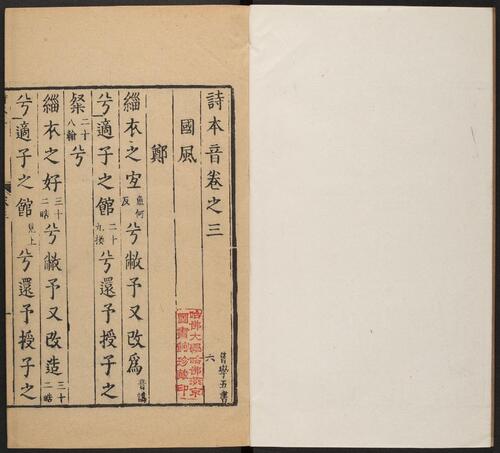 詩本音卷之三
音學五書
六
哈佛大學哈佛燕京
圖書館珍藏印
國風
鄭
緇衣之宐魚何反兮敝予又改爲音譌
兮適子之館二十九換兮還予授子之
粲二十八翰兮
緇衣之好三十二晧兮敝予又改造三十二晧
兮適子之館見上兮還予授子之